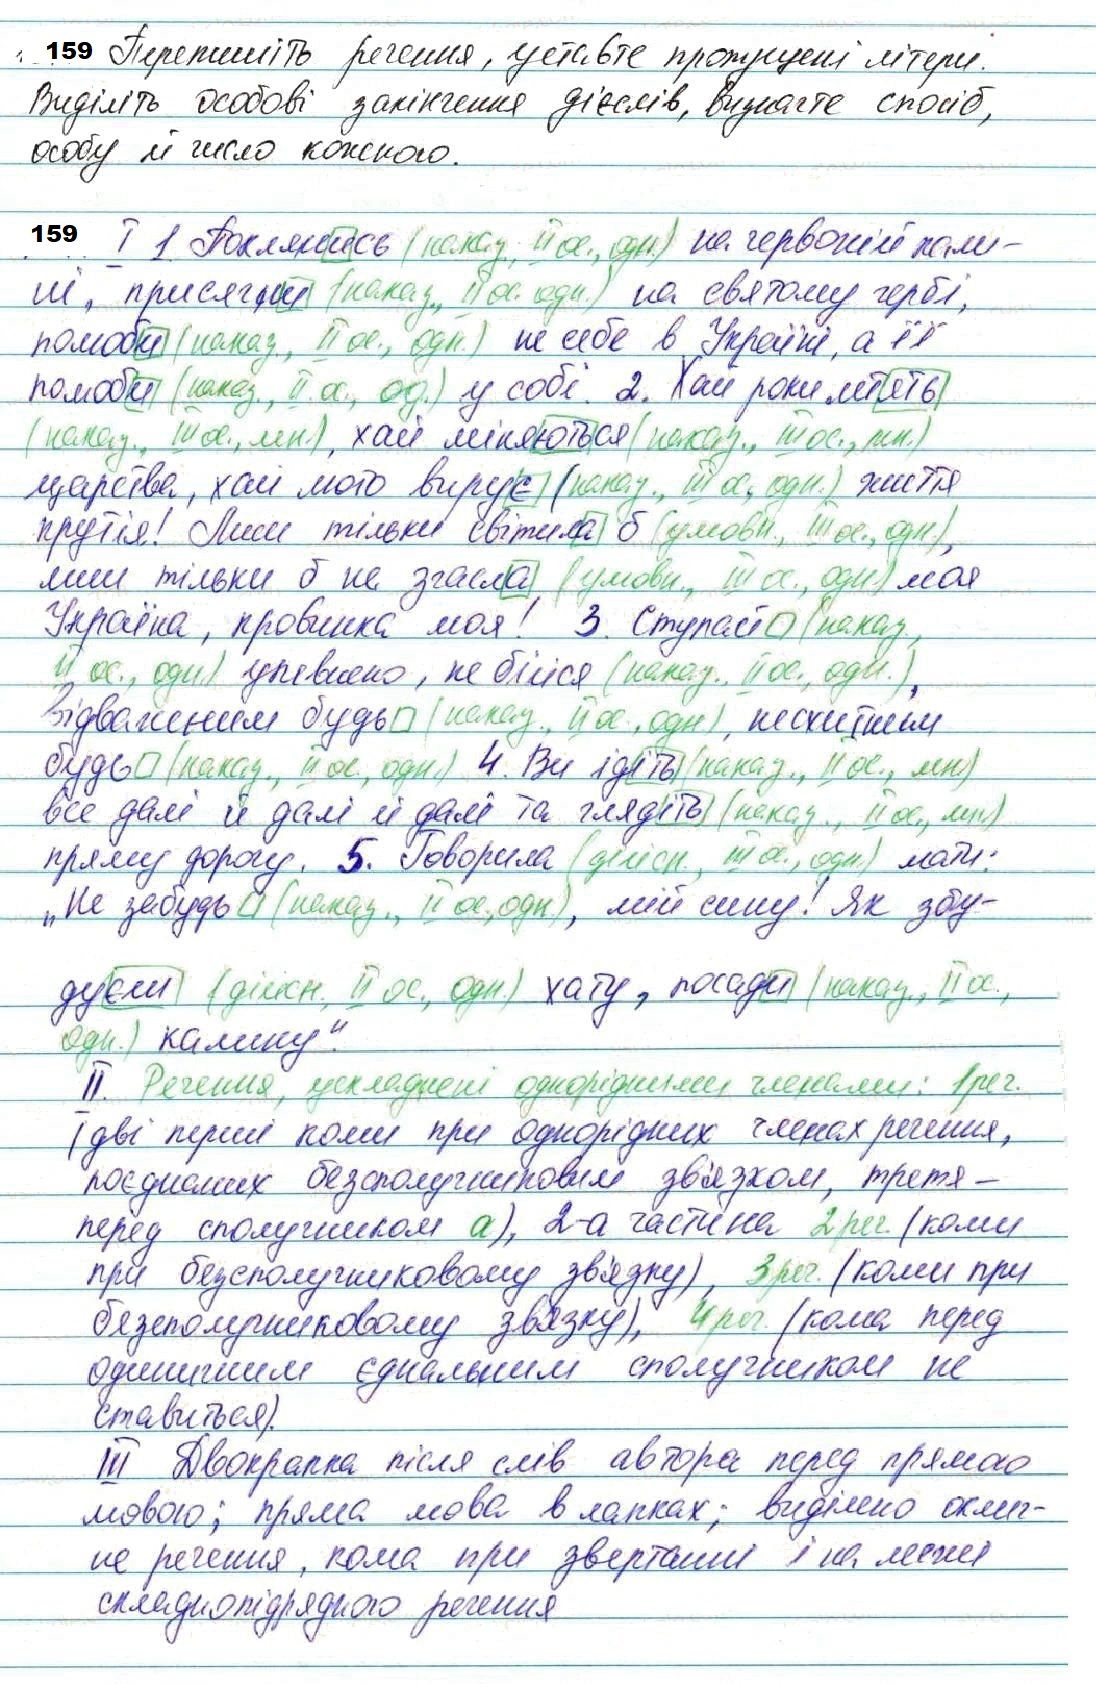 159 Перепишіть речення, уставте пропущені літери.
Виділіть особові закінчення дієслів, визначте спосіб,
особу й число кожного.
159 І 1 Поклянись (наказ., ІІ ос., одн.) на червоній кали-
ні, присягни (наказ., ІІ ос. одн.) на святому гербі,
полюби (наказ., ІІ ос., одн.) не себе в Україні, а її
полюби (наказ., ІІ ос., од.) у собі. 2. Хай роки летять
(наказ., ІІІ ос., мн.), хай міняються (наказ., ІІІ ос., мн.)
царства, хай мого вирує (наказ., ІІІ ос, одн.) життя
прутія! Лиш тільки світила б (умовн., ІІІ ос., одн.),
лиш тільки б не згасла (умовн., ІІІ ос., одн) моя
Україна, кровинка моя! 3. Ступай (наказ.,
ІІ ос., одн) упевнено, не бійся (наказ., ІІ ос., одн.),
відважним будь (наказ., ІІ ос., одн), несхитним
будь (наказ., ІІ ос., одн.) 4. Ви ідіть (наказ., ІІ ос., мн)
все далі й далі й далі та глядіть (наказ., ІІ ос., мн)
пряму дорогу. 5. Говорила (дійсн., ІІІ ос., одн) мати:
„Не забудь (наказ., ІІ ос, одн), мій сину! Як збу-
дуєш (дійсн., ІІ ос., одн) хату, посади (наказ., ІІ ос.,
одн.) калину".
ІІ. Речення, ускладнені однорідними членами: 1 реч.
(дві перші коми при однорідних членах речення,
поєднаних безсполучниковим зв'язком, третя –
перед сполучником а), 2-а частина 2 реч. (коми
при безсполучниковому зв'язку), 3 реч. (коми при
безсполучниковому зв'язку), 4 реч. (кома перед
одиничним єднальним сполучником не
ставиться).
ІІІ Двокрапка після слів автора перед прямою
мовою; пряма мова в лапках; виділено оклич-
не речення, кома при звертанні і на межі
складнопідрядного речення